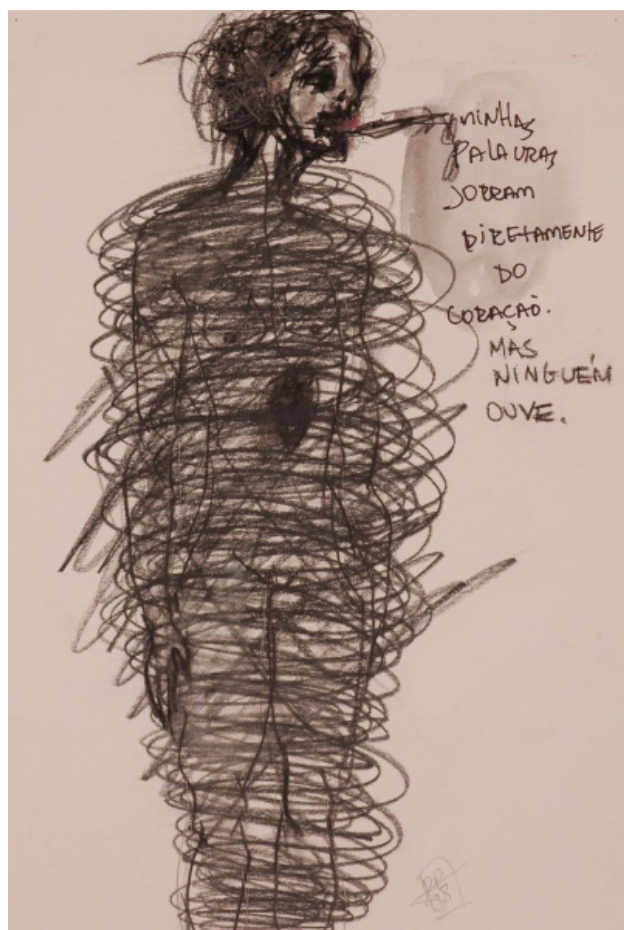 MINHAS
PALAVRAS
JORRAM
DIRETAMENTE
DO
CORAÇAÕ.
MAS
NINGUÉM
OUVE.